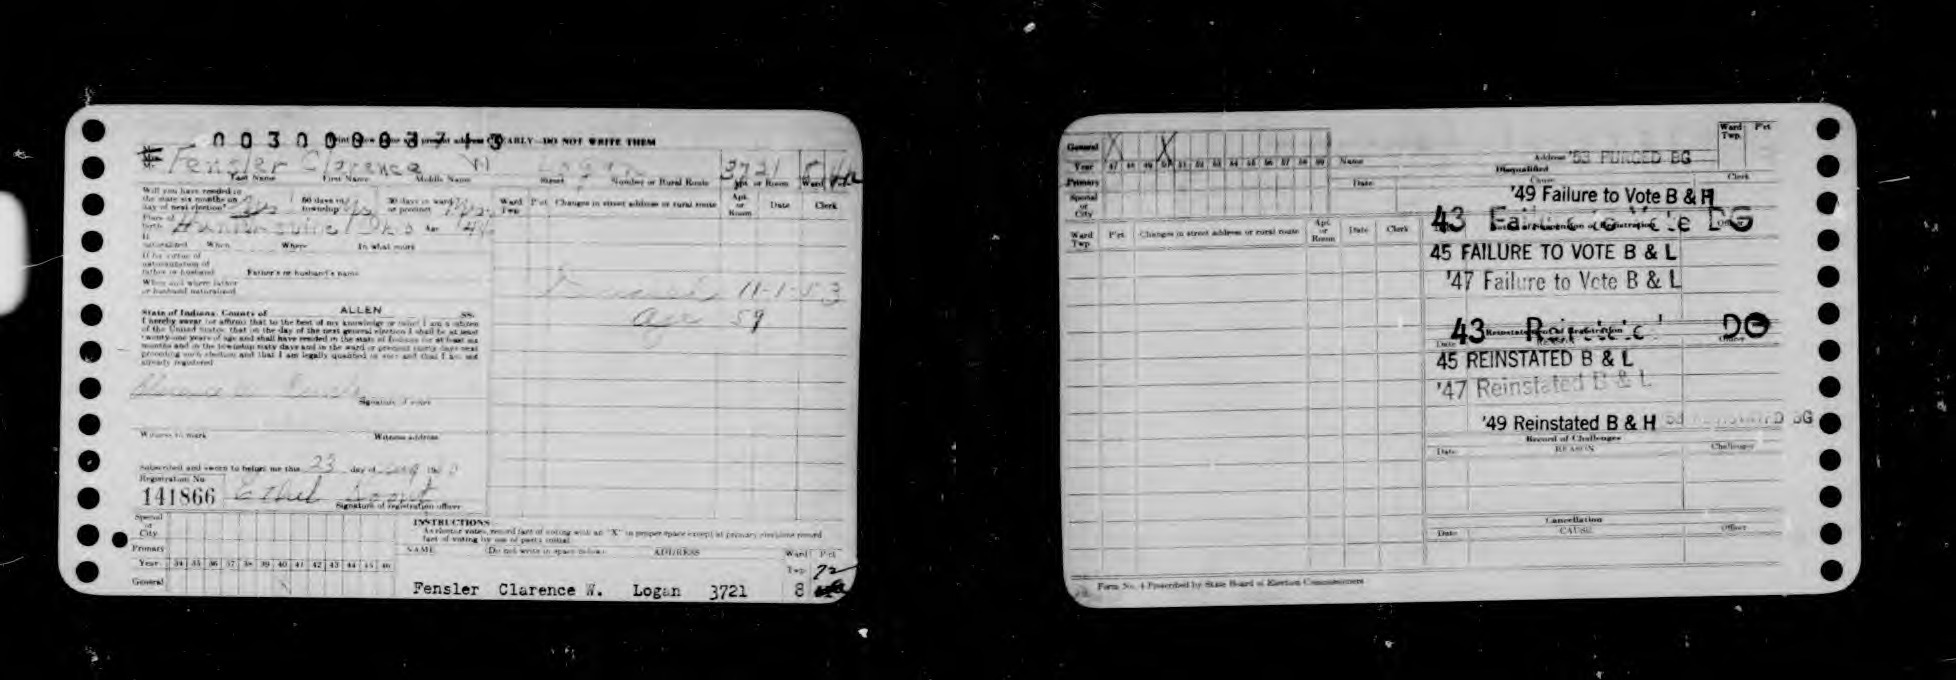 Print
CLEARLY—DO NOT WRITE THEM
Fensler Clarence W Logan 3721
Last Name First Name Middle Name Street Number or Rural Route Apt. or Room Ward Pct.
Will you have resided in the state six months on day of next election? Yes 60 days in township? Yes 30 days in ward or precinct? Yes
Ward Twp. P'ct Changes in street address or rural route Apt. or Room Date Clerk
Place of birth Huntersville, Ohio Age 46
If naturalized When Where In what court
If by virtue of naturalization of father or husband Father's or husband's name
When and where father or husband naturalized
11-1-53
age 59
State of Indiana, County of ALLEN SS:
I hereby swear (or affirm) that to the best of my knowledge or belief I am a citizen
of the United States; that on the day of the next general election I shall be at least
twenty-one years of age and shall have resided in the state of Indiana for at least six
months and in the township sixty days and in the ward or precinct thirty days next
preceding such election and that I am legally qualified to vote and that I am not
already registered
Clarence W. Fensler
Signature of voter
Witness to mark Witness address
Subscribed and sworn to before me this 23 day of Aug 19
Registration No.
141866 Ethel
Signature of registration officer
Special or City
INSTRUCTIONS
As elector votes, record fact of voting with an "X" in proper space except at primary elections record
fact of voting by use of party initial
Primary
NAME (Do not write in space below) ADDRESS Ward Pct
Year 34 35 36 37 38 39 40 41 42 43 44 45 46 Twp. 72
General
Fensler Clarence W. Logan 3721 8
General X X
Ward Twp. P'ct
Year '47 48 49 50 51 52 53 54 55 56 57 58 59 Name Address '53 PURGED BG
Primary Date Disqualified Cause Clerk
Special or City
'49 Failure to Vote B & H
43 Failure to Vote DG
Ward Twp. P'ct Changes in street address or rural route Apt. or Room Date Clerk
45 FAILURE TO VOTE B & L
'47 Failure to Vote B & L
43 Reinstated DG
Reinstatement of Registration
Date Officer
45 REINSTATED B & L
'47 Reinstated B & L
'49 Reinstated B & H REINSTATED BG
Record of Challenges
Date REASON Challenger
Cancellation
Date CAUSE Officer
Form No. 4 Prescribed by State Board of Election Commissioners